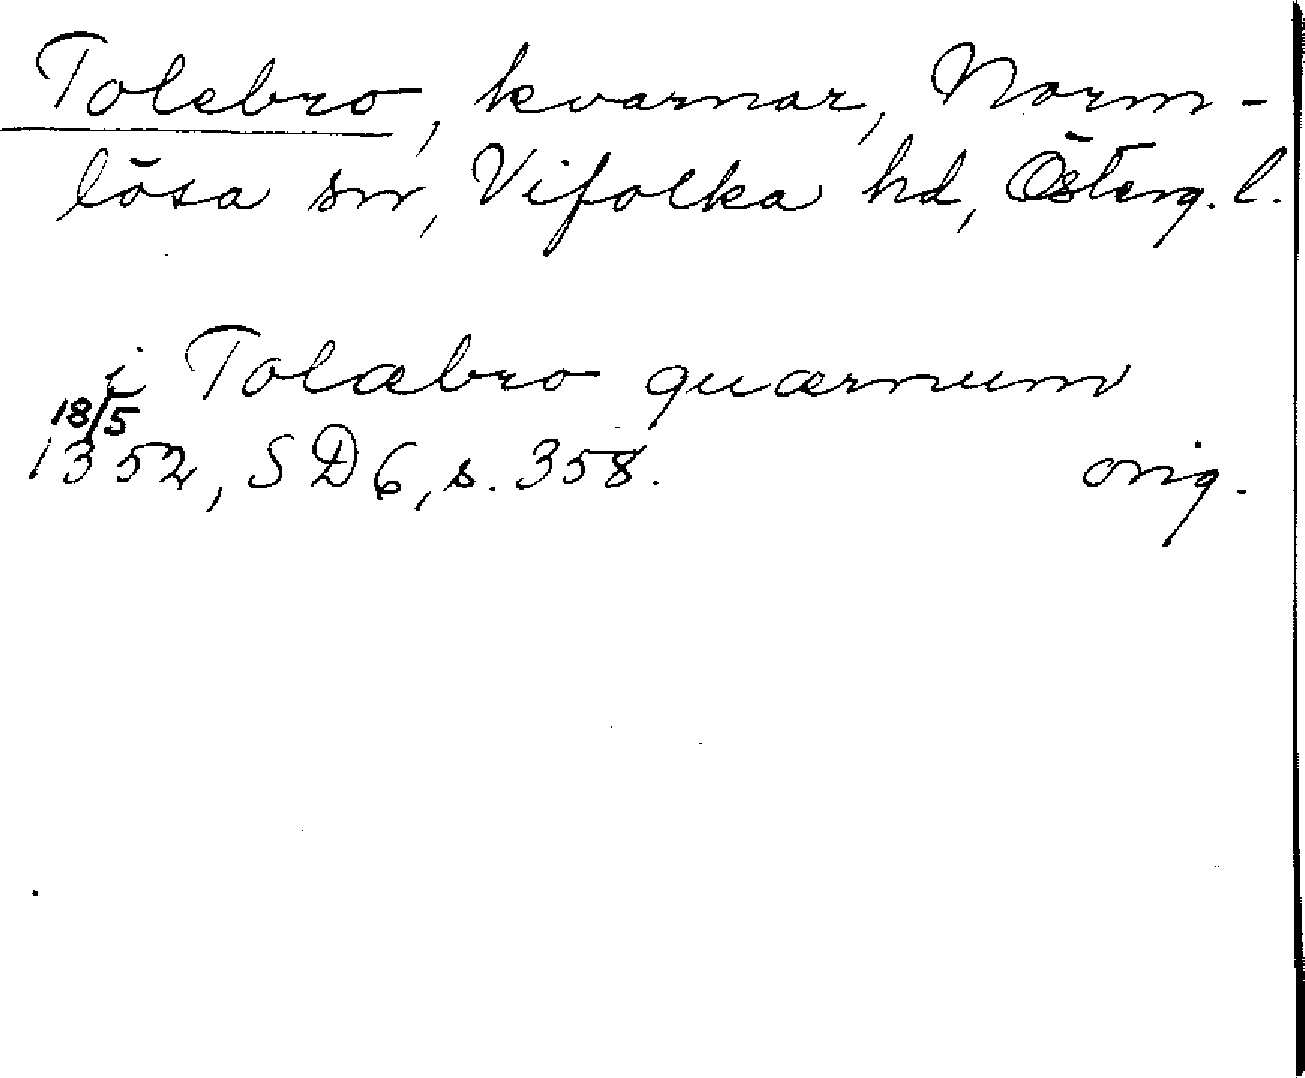 Tolebro, kvarnar, Norm-
lösa sn, Vifolka hd, Österg. l.
i Tolæbro quærnum
18/5
1352, SD6, s. 358. orig.